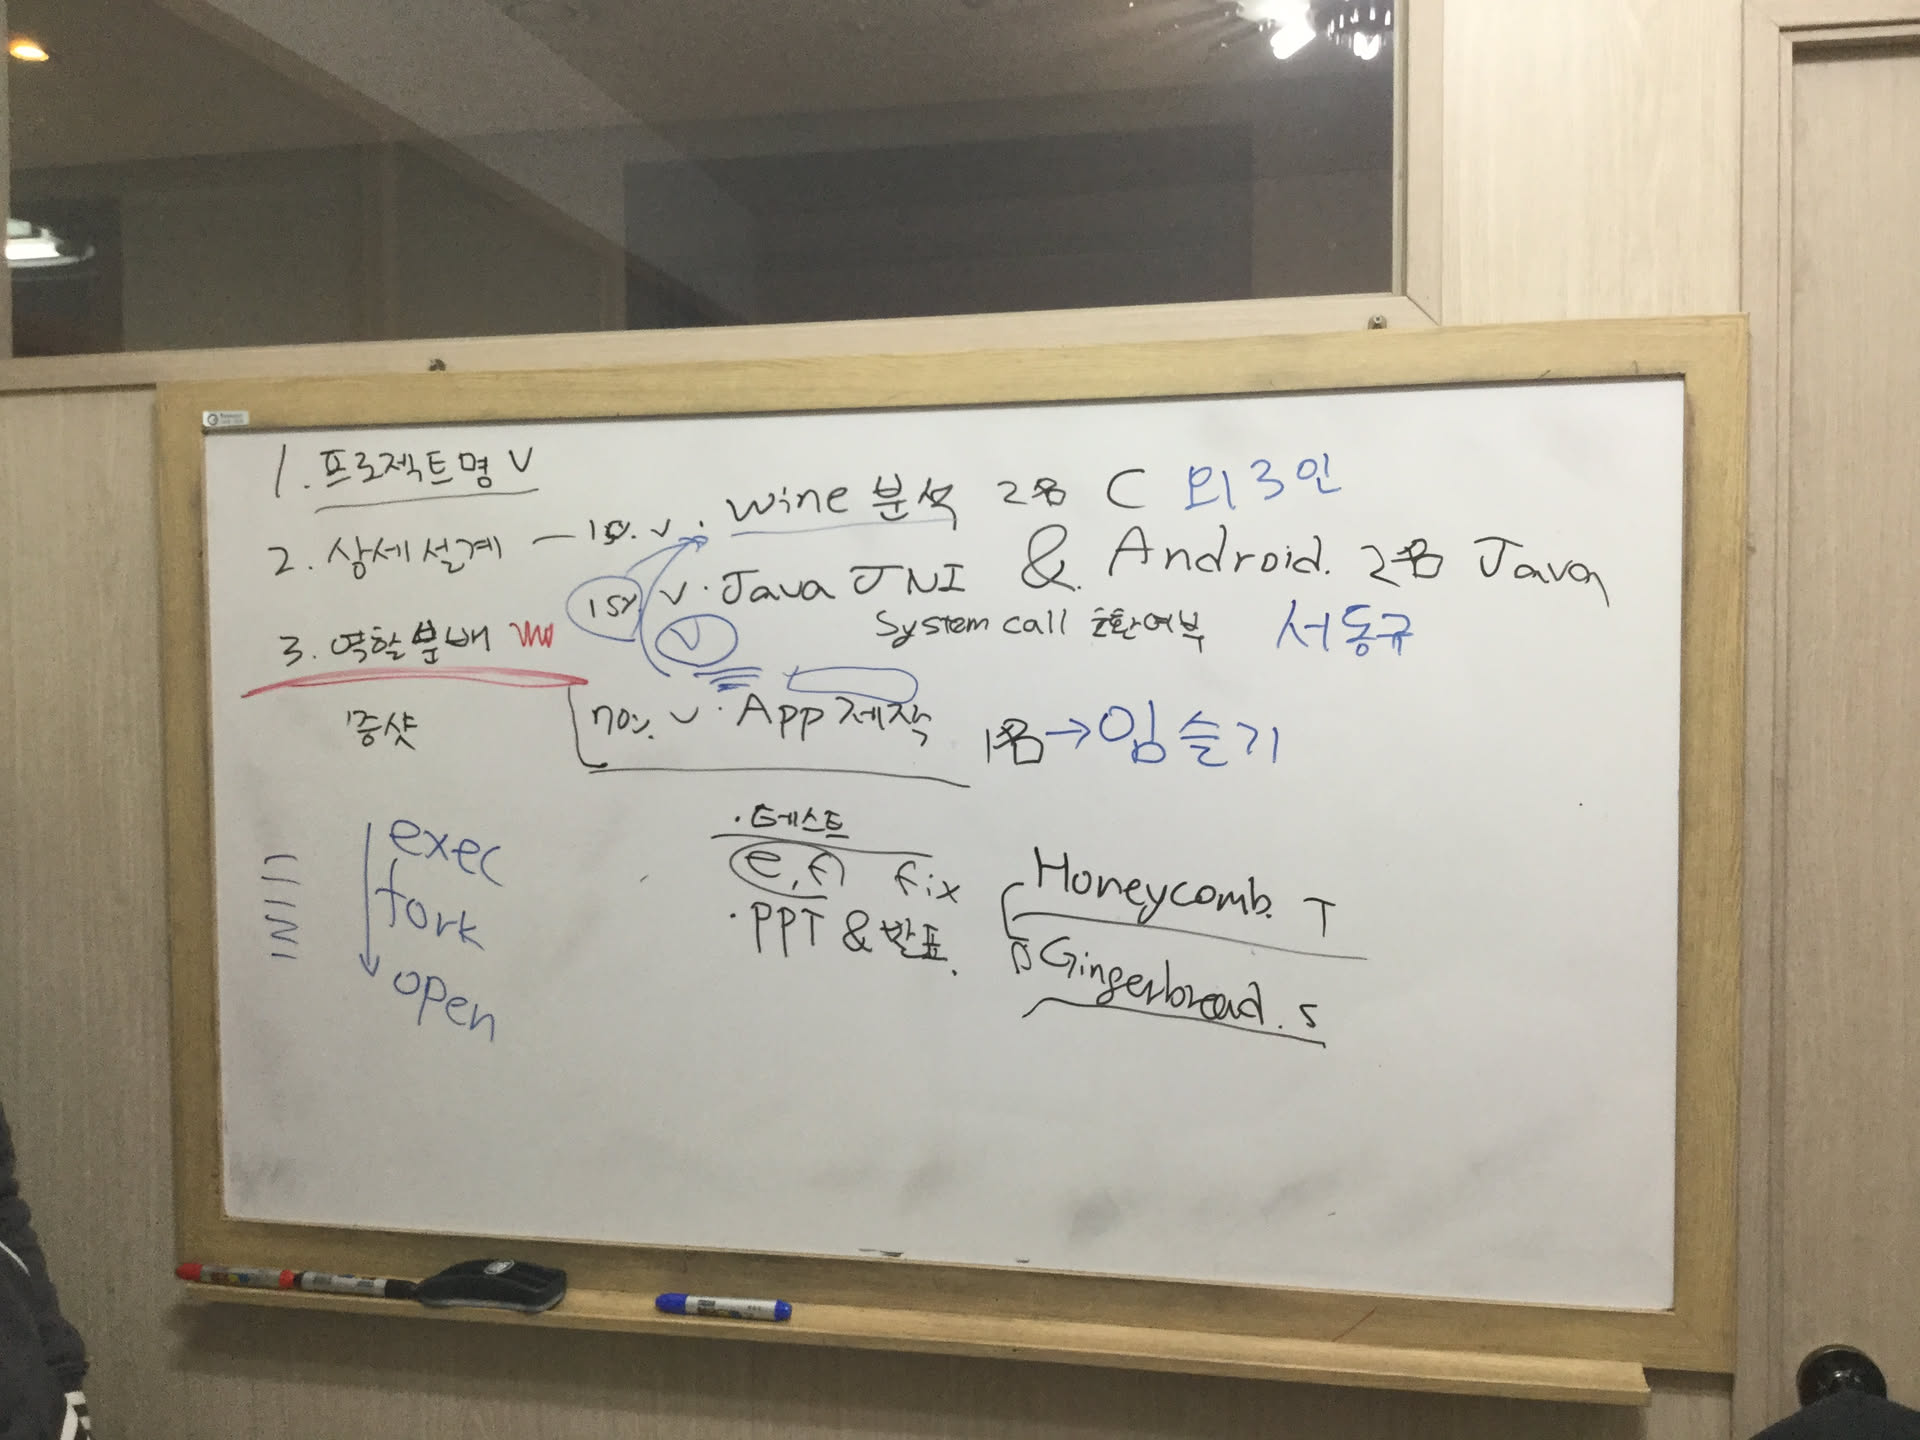 1. 프로젝트명 V
2. 상세설계 — 15%. V · Wine 분석 2名 C 외 3인
15% V · Java JNI & Android. 2名 Java
V
System call 호환여부 서동규
3. 역할분배
70% V · App 제작 1名 → 임슬기
증샷
· 테스트
e, f) fix
· PPT & 발표.
Honeycomb. T
Gingerbread. S
exec
fork
open